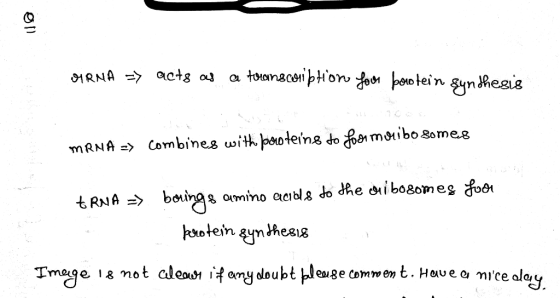 Q
rRNA => acts as a transcription for protein synthesis
mRNA => Combines with proteins to form ribosomes
tRNA => brings amino acids to the ribosomes for
protein synthesis
Image is not clear if any doubt please comment. Have a nice day.